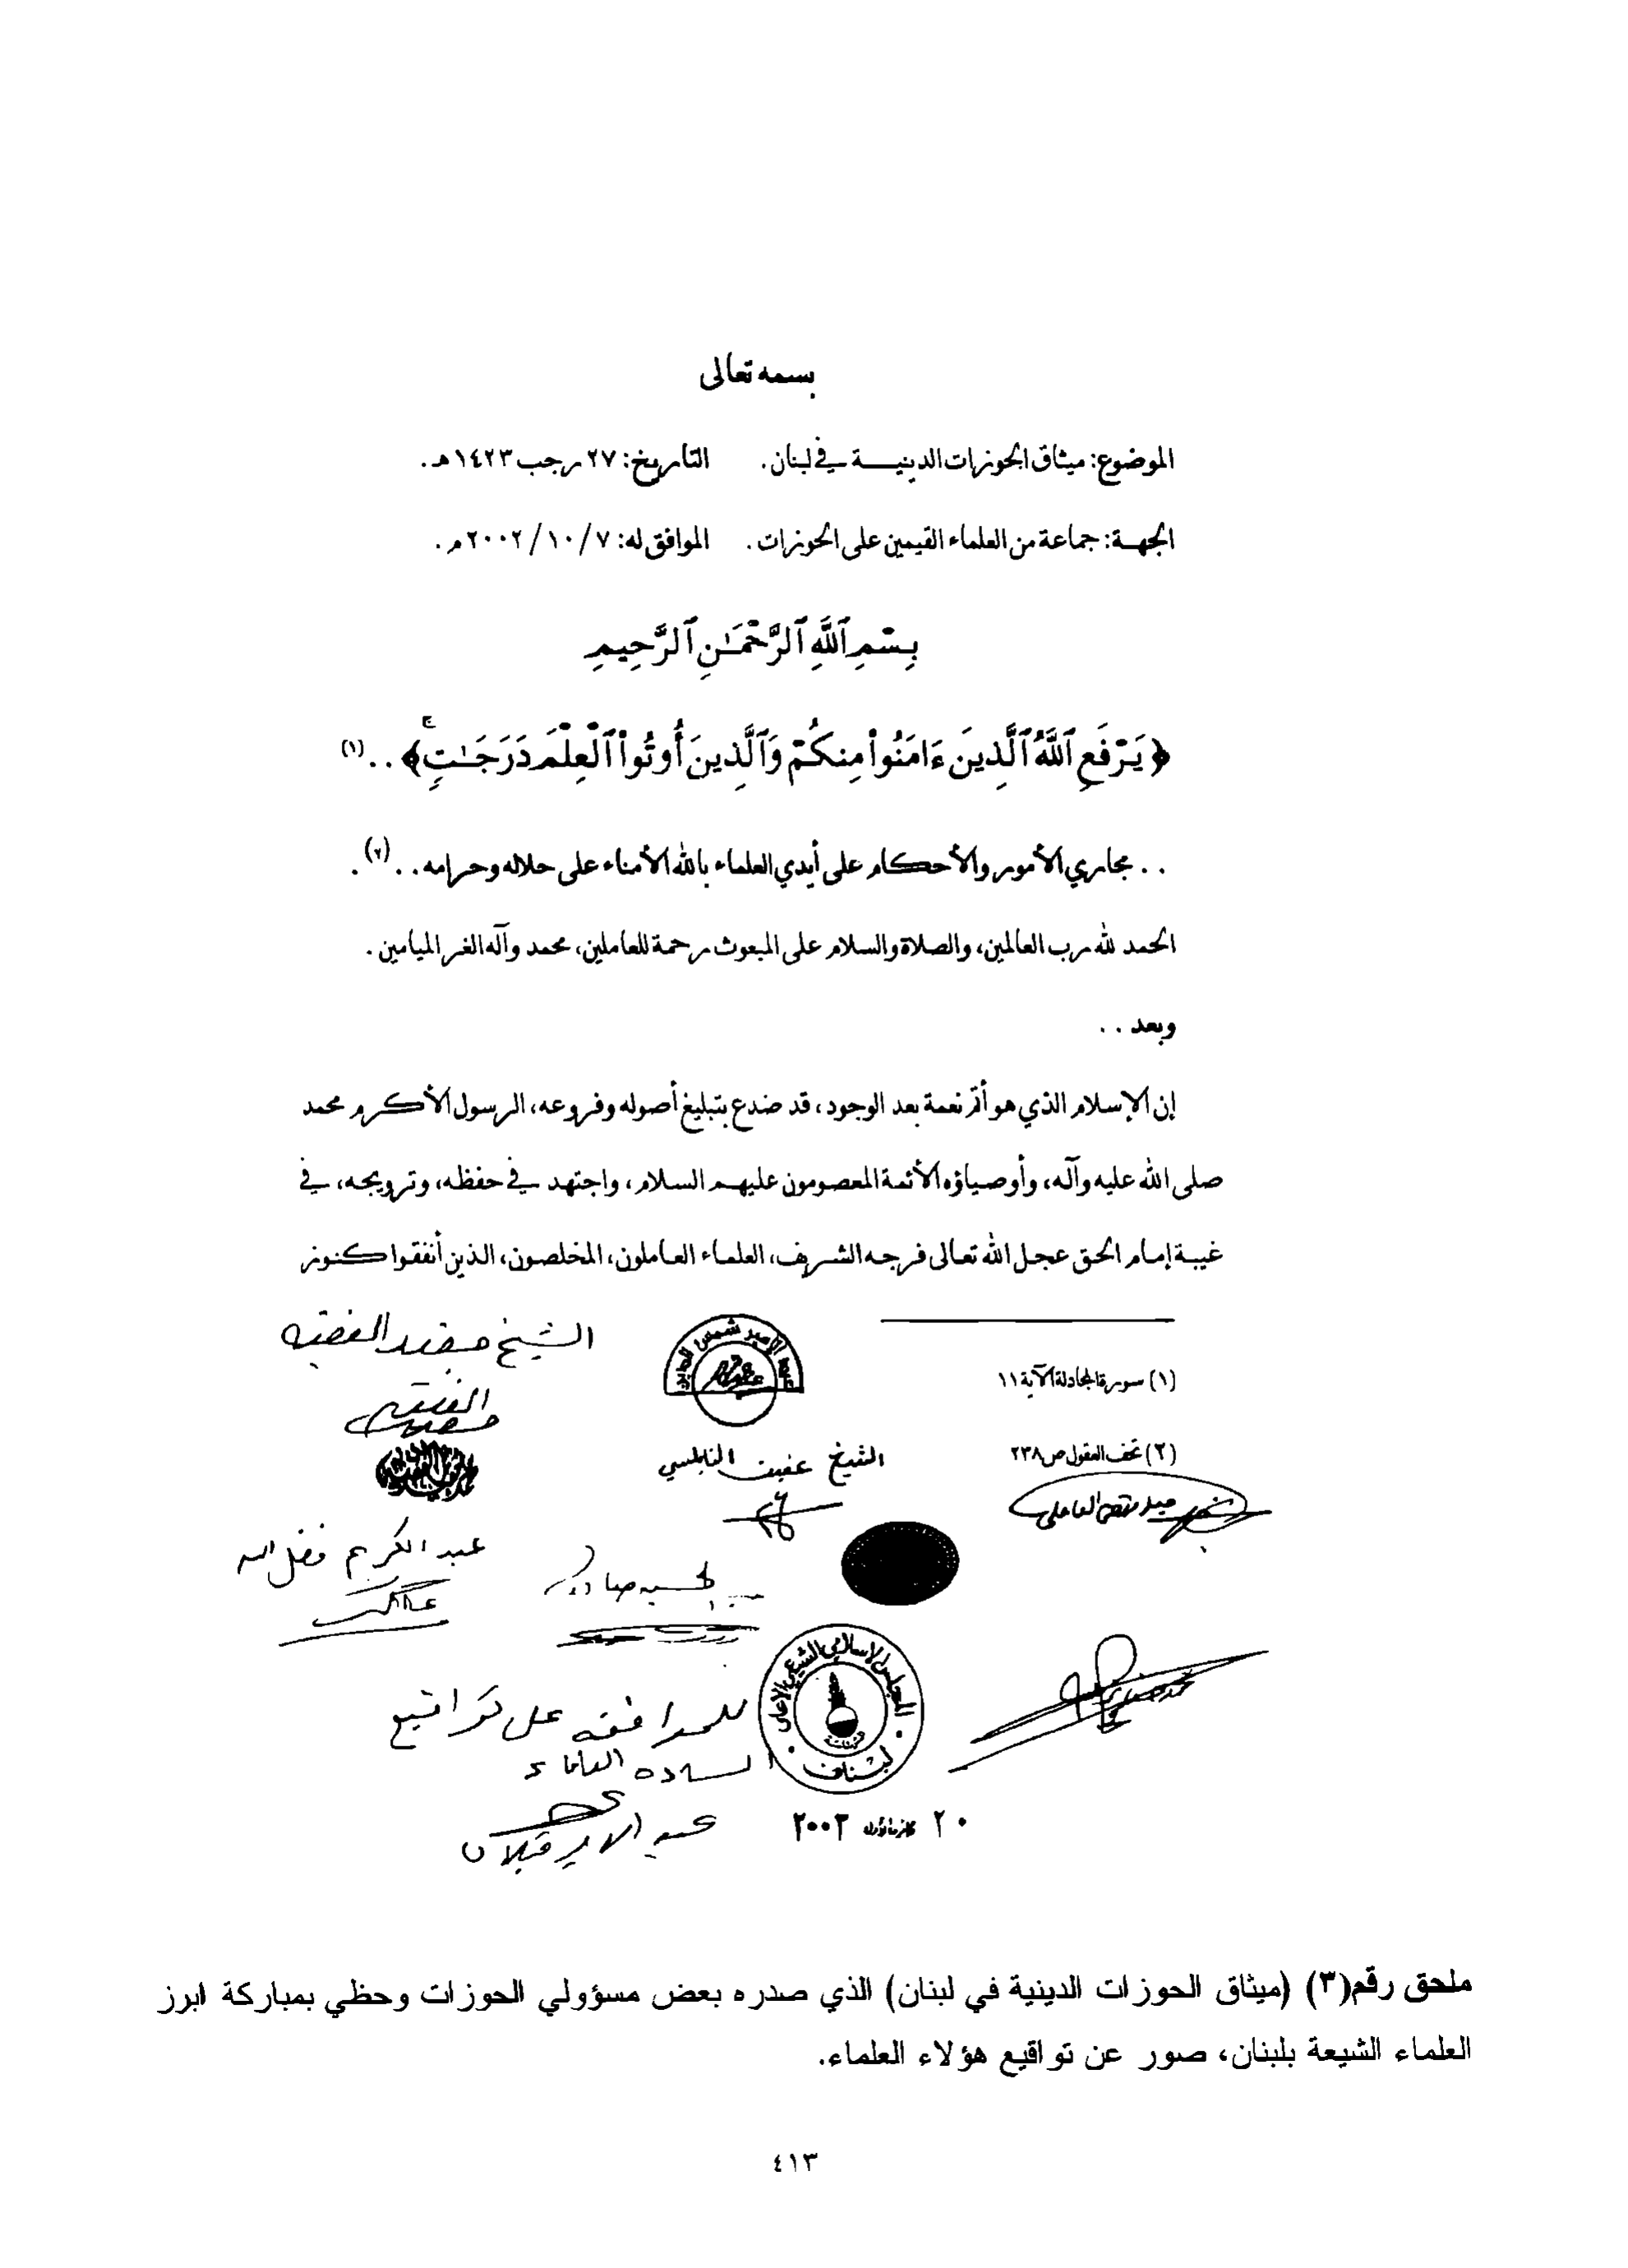 بسمه تعالى
الموضوع: ميثاق الحوزات الدينية في لبنان. التأريخ: ٢٧ رجب ١٤٢٣هـ.
الجهة: جماعة من العلماء القيمين على الحوزات. الموافق له: ٧/١٠/٢٠٠٢م.
بِسْمِ ٱللَّهِ ٱلرَّحْمَـٰنِ ٱلرَّحِيمِ
﴿يَرْفَعِ ٱللَّهُ ٱلَّذِينَ ءَامَنُوا۟ مِنكُمْ وَٱلَّذِينَ أُوتُوا۟ ٱلْعِلْمَ دَرَجَـٰتٍۚ﴾..(١)
.. مجاري الأمور والأحكام على أيدي العلماء بالله الأمناء على حلاله وحرامه..(٢).
الحمد لله رب العالمين، والصلاة والسلام على المبعوث رحمة للعاملين، محمد وآله الغر الميامين.
وبعد..
إن الإسلام الذي هو أتم نعمة بعد الوجود، قد ضدع بتبليغ أصوله وفروعه، الرسول الأكرم محمد
صلى الله عليه وآله، وأوصياؤه الأئمة المعصومون عليهم السلام، واجتهد في حفظه، وترويجه، في
غيبة إمام الحق عجل الله تعالى فرجه الشريف، العلماء العاملون، المخلصون، الذين أنفقوا كنوز
(١) سورة المجادلة الآية ١١
(٢) تحف العقول ص ٢٣٨
الشيخ مفيد الفقيه
الشيخ عفيف النابلسي
عبد الكريم فضل الله
المجلس الاسلامي الشيعي الاعلى
لبنان
للموافقة على تواقيع
السادة العلماء
عبد الامير قبلان
٢٠ كانون الأول ٢٠٠٢
ملحق رقم(٣) (ميثاق الحوزات الدينية في لبنان) الذي صدره بعض مسؤولي الحوزات وحظي بمباركة ابرز
العلماء الشيعة بلبنان، صور عن تواقيع هؤلاء العلماء.
٤١٣